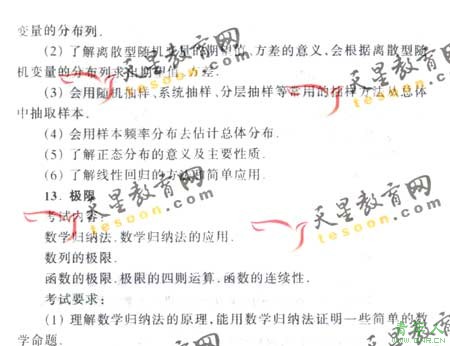 变量的分布列.
(2) 了解离散型随机变量的期望值、方差的意义,会根据离散型随
机变量的分布列求出期望值、方差.
(3) 会用随机抽样,系统抽样,分层抽样等常用的抽样方法从总体
中抽取样本.
(4) 会用样本频率分布去估计总体分布.
(5) 了解正态分布的意义及主要性质.
(6) 了解线性回归的方法和简单应用.
13. 极限
考试内容:
数学归纳法.数学归纳法的应用.
数列的极限.
函数的极限.极限的四则运算.函数的连续性.
考试要求:
(1) 理解数学归纳法的原理,能用数学归纳法证明一些简单的数
学命题.
天星教育网
tesoon.com
天星教育网
tesoon.com
天星教育网
tesoon.com
天星教育网
tesoon.com